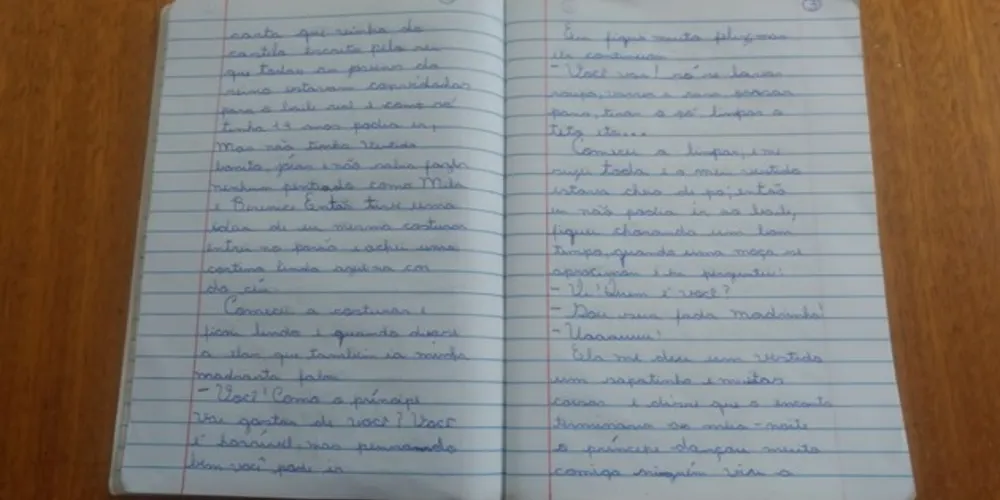 carta que vinha do
castelo escrita pelo rei
que todas as pessoas do
reino estavam convidadas
para o baile real e como só
tinha 17 anos podia ir,
mas não tinha vestido
bonito, joias e não sabia fazer
nenhum penteado como Mila
e Berenice Então tive uma
ideia de eu mesma costurar
entrei no porão e achei uma
cortina linda azul na cor
do céu.
Comecei a costurar e
ficou lindo e quando disse
a elas que também ia minha
madrasta falou
- Você! Como o príncipe
vai gostar de você? Você
é horrível, mas pensando
bem você pode ir
3
Eu fiquei muito feliz, mas
ela continuou
- Você vai! só se lavar
roupa, varrer a casa passar
pano, tirar o pó limpar o
teto etc...
Comecei a limpar, e me
sujei toda e o meu vestido
estava cheio de pó, então
eu não podia ir ao baile,
fiquei chorando um bom
tempo, quando uma moça se
aproximou e me perguntei:
- Ué! Quem é você?
- Sou sua fada madrinha!
- Uaaauuu!
Ela me deu um vestido
um sapatinho e muitas
coisas e disse que o encanto
terminaria ao meia-noite
o príncipe dançou muito
comigo ninguém viu a